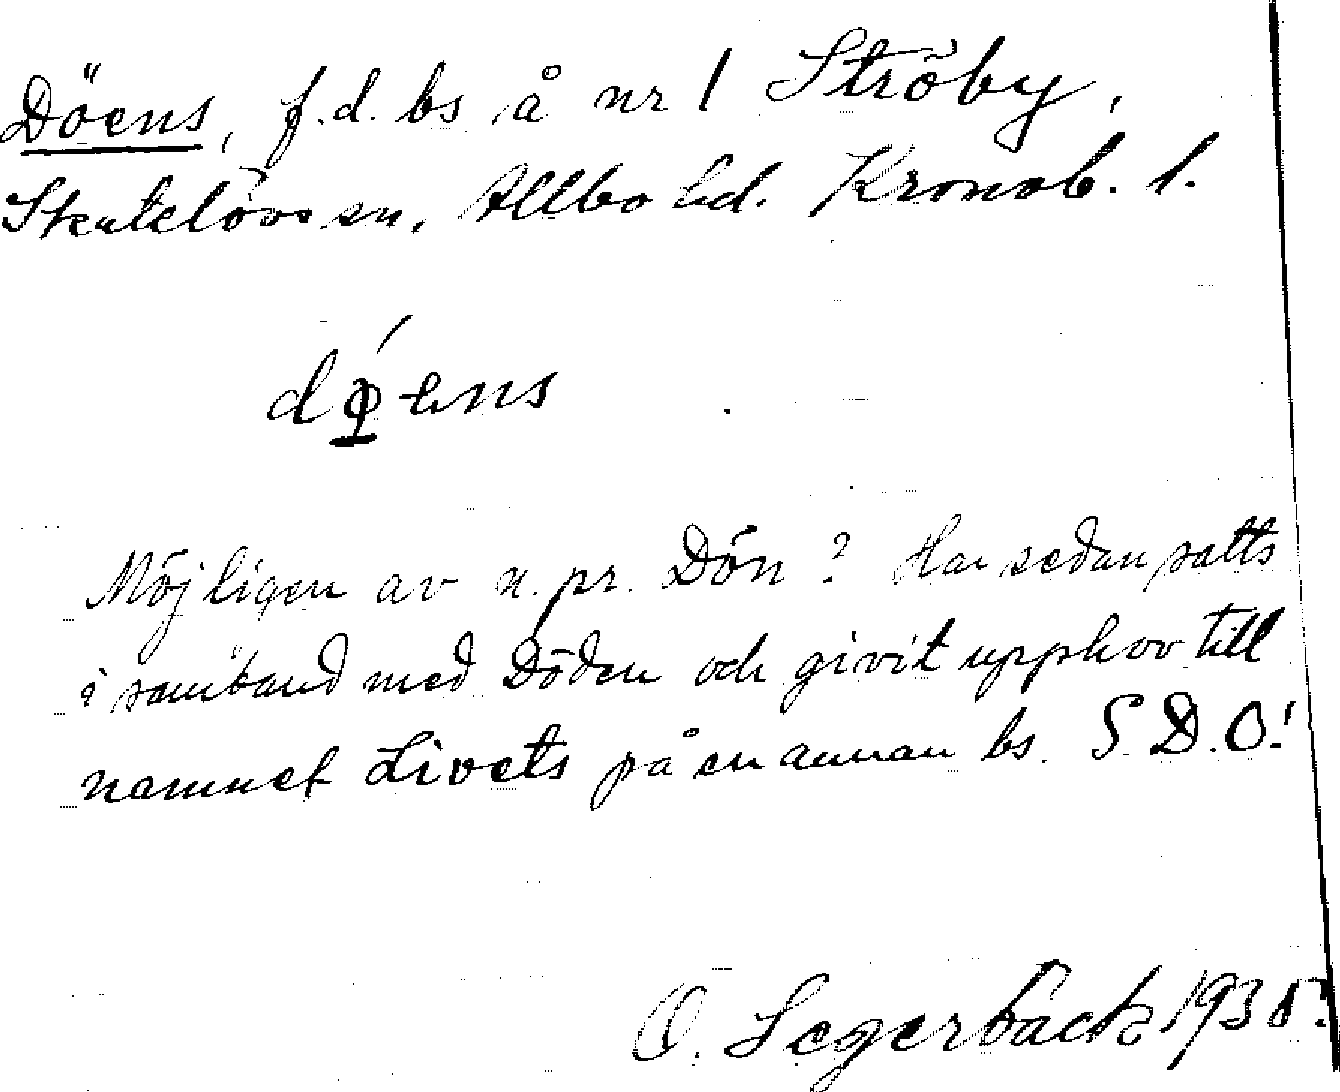 Döens, f.d. bs å nr 1 Ströby,
Skatelövs sn, Allbo hd. Kronob. l.
Möjligen av n.pr. Dön? Har sedan satts
i samband med Döden och givit upphov till
namnet Livets på en annan bs. S.D.O!
O. Segerbäck 1935.